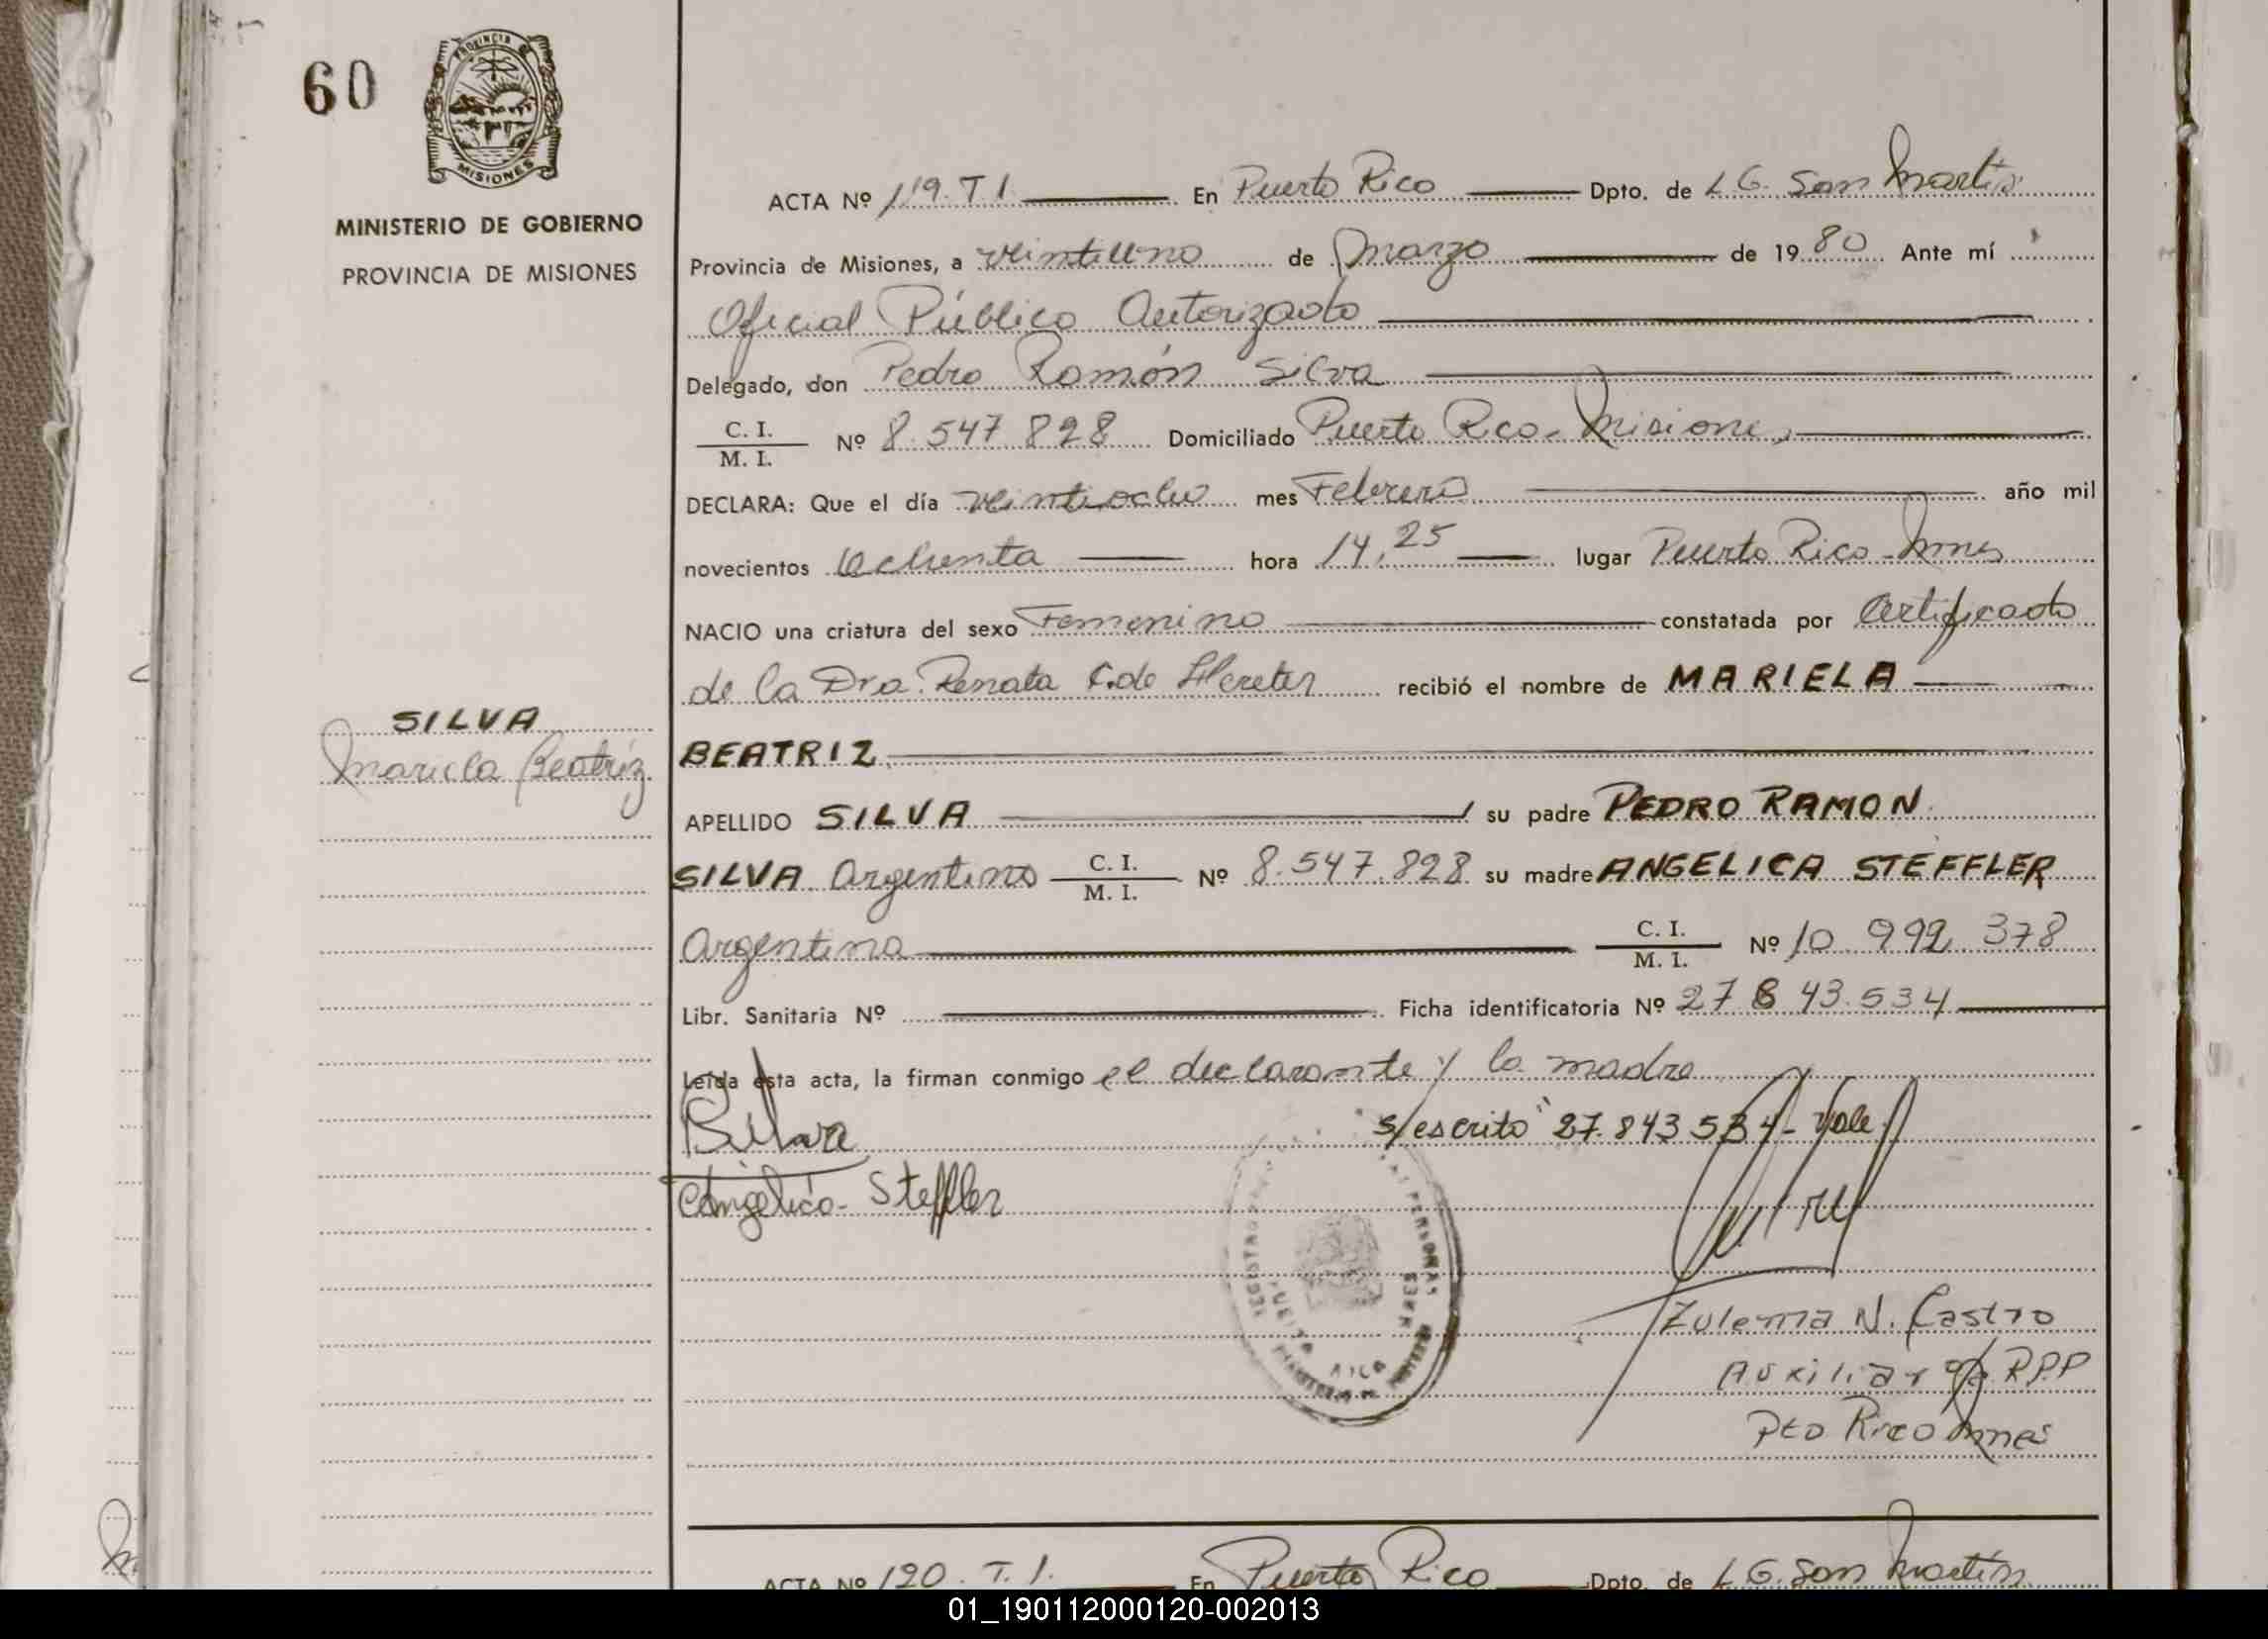 60
PROVINCIA DE
MISIONES
MINISTERIO DE GOBIERNO
PROVINCIA DE MISIONES
SILVA
Mariela Beatríz
ACTA Nº 119. T 1 En Puerto Rico Dpto. de L G. San Martín
Provincia de Misiones, a veintiuno de Marzo de 19 80 Ante mí
Oficial Público Autorizado
Delegado, don Pedro Ramón Silva
C. I.
M. I.
Nº 8.547.828 Domiciliado Puerto Rico - Misiones
DECLARA: Que el día veintiocho mes Febrero año mil
novecientos Ochenta hora 14,25 lugar Puerto Rico - Mnes
NACIO una criatura del sexo Femenino constatada por Certificado
de la Dra. Renata C. de recibió el nombre de MARIELA
BEATRIZ
APELLIDO SILVA su padre PEDRO RAMON
SILVA Argentino C. I. M. I. Nº 8.547.828 su madre ANGELICA STEFFLER
Argentina C. I. M. I. Nº 10 992 378
Libr. Sanitaria Nº Ficha identificatoria Nº 27 843.534
Leída esta acta, la firman conmigo el declarante y la madre
s/escrito "27.843534- Vale
Angelica - Steffler
REGISTRO PERSONAS
PUERTO RICO
Zulema N. Castro
Auxiliar RPP
Pto Rico Mnes
ACTA Nº 120. T. 1. En Puerto Rico Dpto. de L G. San Martín
01_190112000120-002013